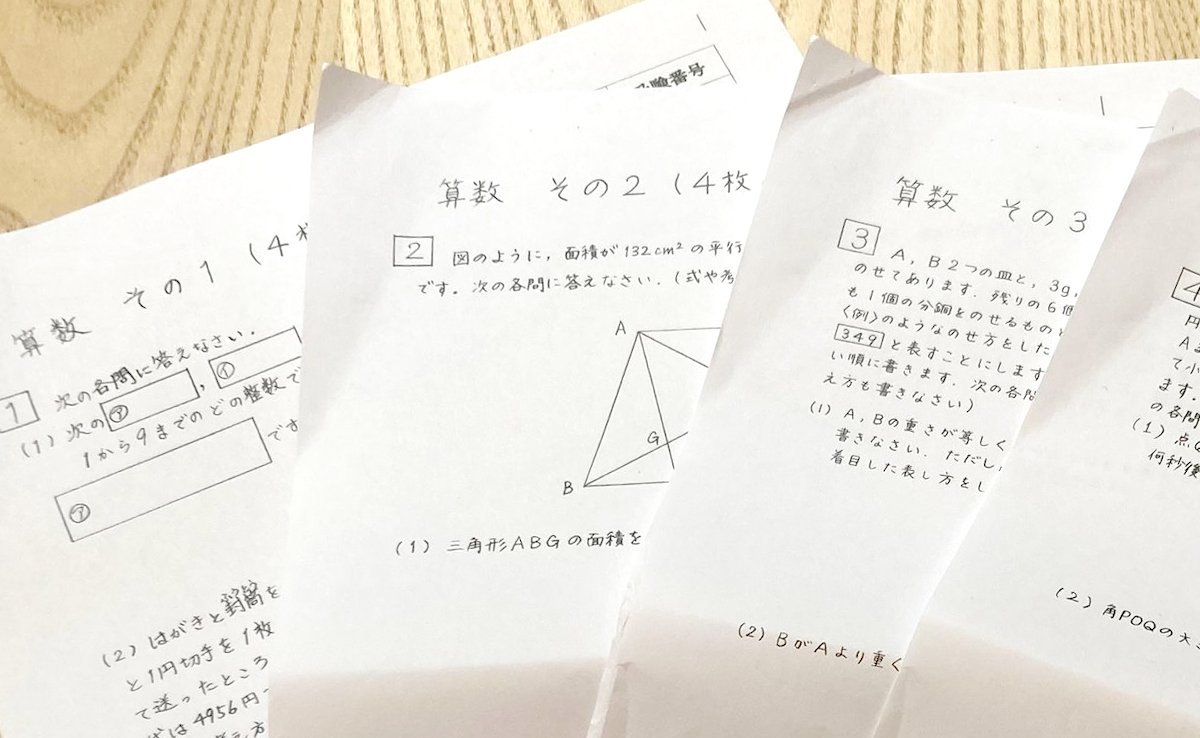 算数 その1 (4枚
1 次の各問に答えなさい.
(1) 次の ㋐ , ㋑
1から9までのどの整数で
㋐ です
(2) はがきと封筒を
と1円切手を1枚
て送ったところ
は4956円
験番号
算数 その2 (4枚
2 図のように, 面積が132cm²の平行
です. 次の各問に答えなさい. (式や考
A
G
B
(1) 三角形ABGの面積を
算数 その3
3 A, B 2つの皿と, 3g,
のせてあります. 残りの6個
も1個の分銅をのせるものと
〈例〉のようなのせ方をした
349 と表すことにします
い順に書きます. 次の各問
え方も書きなさい)
(1) A, Bの重さが等しく
書きなさい. ただし
着目した表し方をし
(2) BがAより重く
4
円
A
て小
ます.
の各問
(1) 点Q
何秒後
(2) 角POQの大